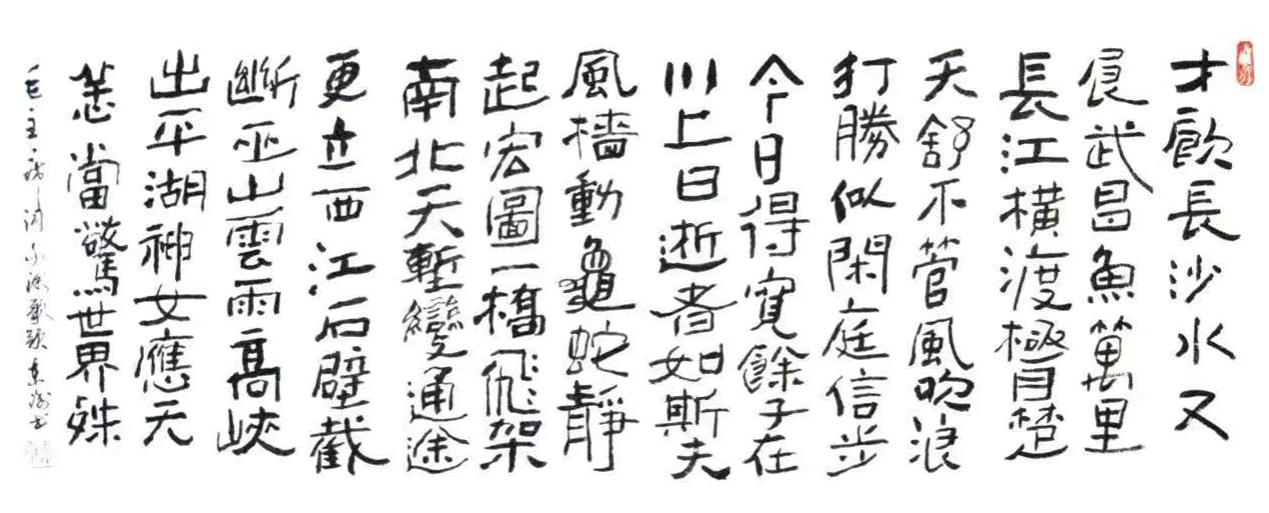 才飲長沙水又
食武昌魚萬里
長江橫渡極目楚
天舒不管風吹浪
打勝似閑庭信步
今日得寬餘子在
川上曰逝者如斯夫
風檣動龜蛇靜
起宏圖一橋飛架
南北天塹變通途
更立西江石壁截
斷巫山雲雨高峽
出平湖神女應无
恙當驚世界殊
毛主席詩詞水調歌頭